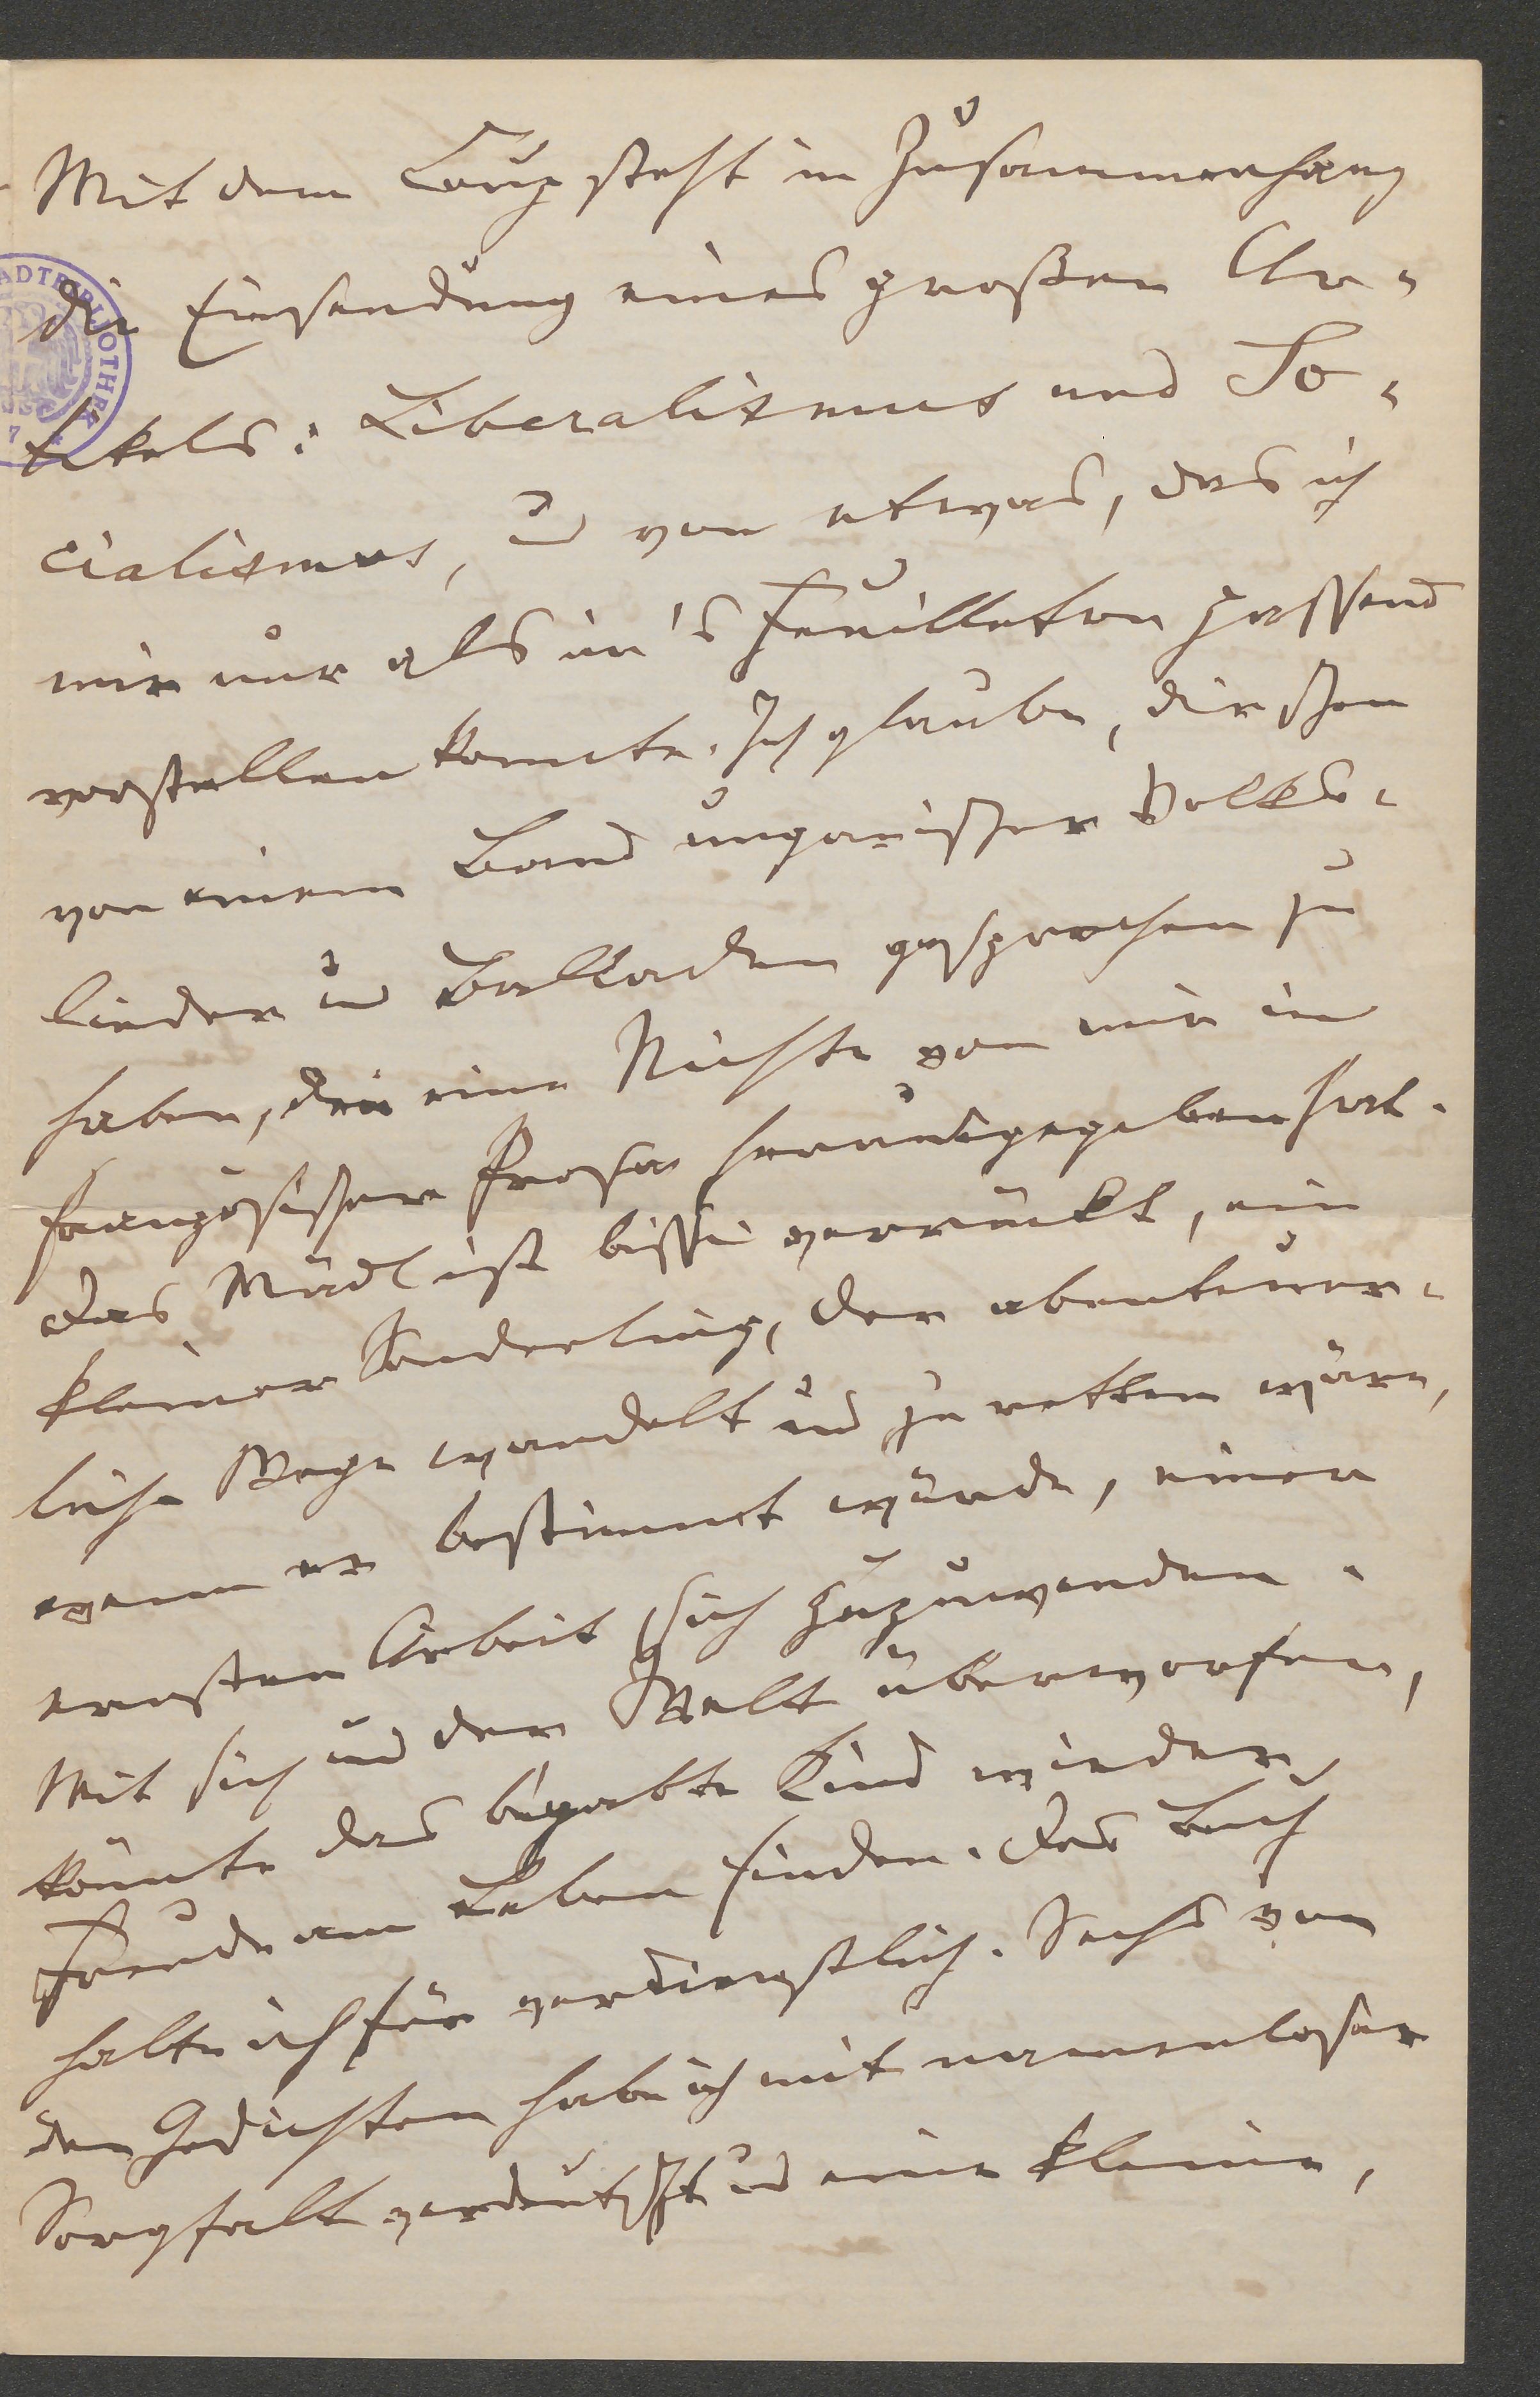 Mit dem Coup steht in Zusammenhang
die Einsendung eines großen Ar-
tikels: Liberalismus und So-
cialismus, u von etwas, das ich
mir nur als in's Feuilleton passend
vorstellen konnte. Ich glaube, dir schon
von einem Band ungarischer Volks-
lieder u Balladen gesprochen zu
haben, den eine Nichte von mir in
französischer Prosa herausgegeben hat.
Das Mädl ist bissl verrückt, ein
kleiner Sonderling, der abenteuer-
liche Wege wandelt und zu retten wäre,
wenn er bestimmt würde, einer
ernsten Arbeit sich zuzuwenden.
Mit sich und der Welt überworfen,
könnte das begabte Kind wieder
Freude am Leben finden. Das Buch
halte ich für verdienstlich. Sechs von
den Gedichten habe ich mit namenloser
Sorgfalt verdeutscht u eine kleine,
ADTBIBLIOTHEK